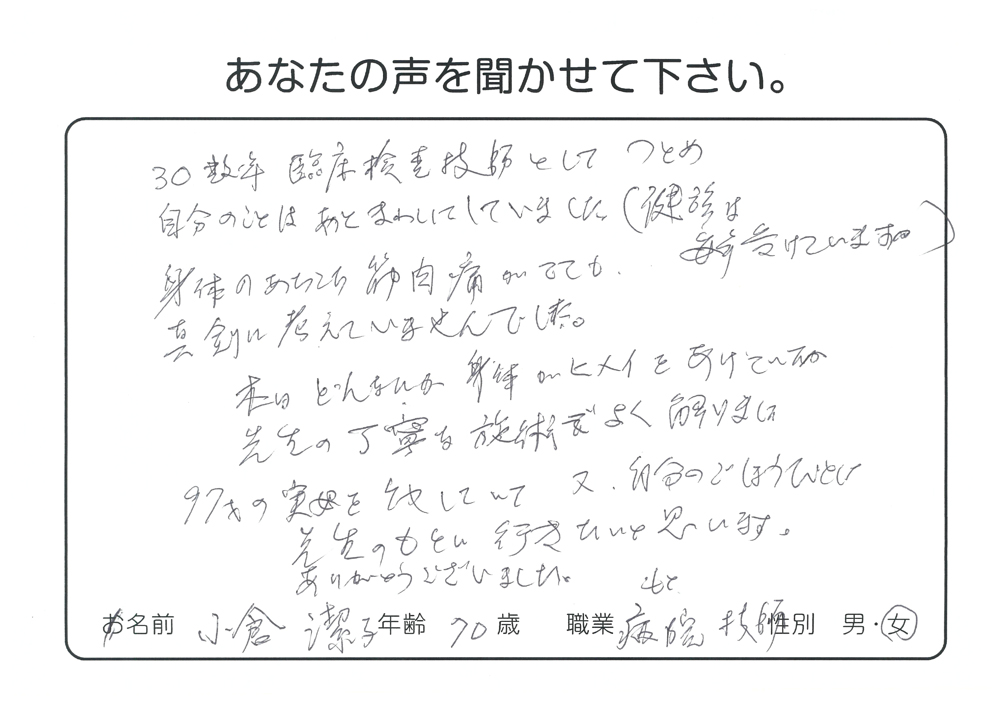 あなたの声を聞かせて下さい。
30数年 臨床検査技師として つとめ
自分のことは あとまわしにしていました(健診は
毎年受けていますが)
身体のあちこち 筋肉痛がでても、
真剣に考えていませんでした。
本日 どんなにか 身体がヒメイをあけているか
先生の丁寧な施術でよく解りました
97才の実母を 介していて 又、自分のごほうびとし
先生のもとに 行きたいと思います。
ありがとうございました。
お名前 小倉 潔子 年齢 70 歳 職業 もと 病院 技師 性別 男・女